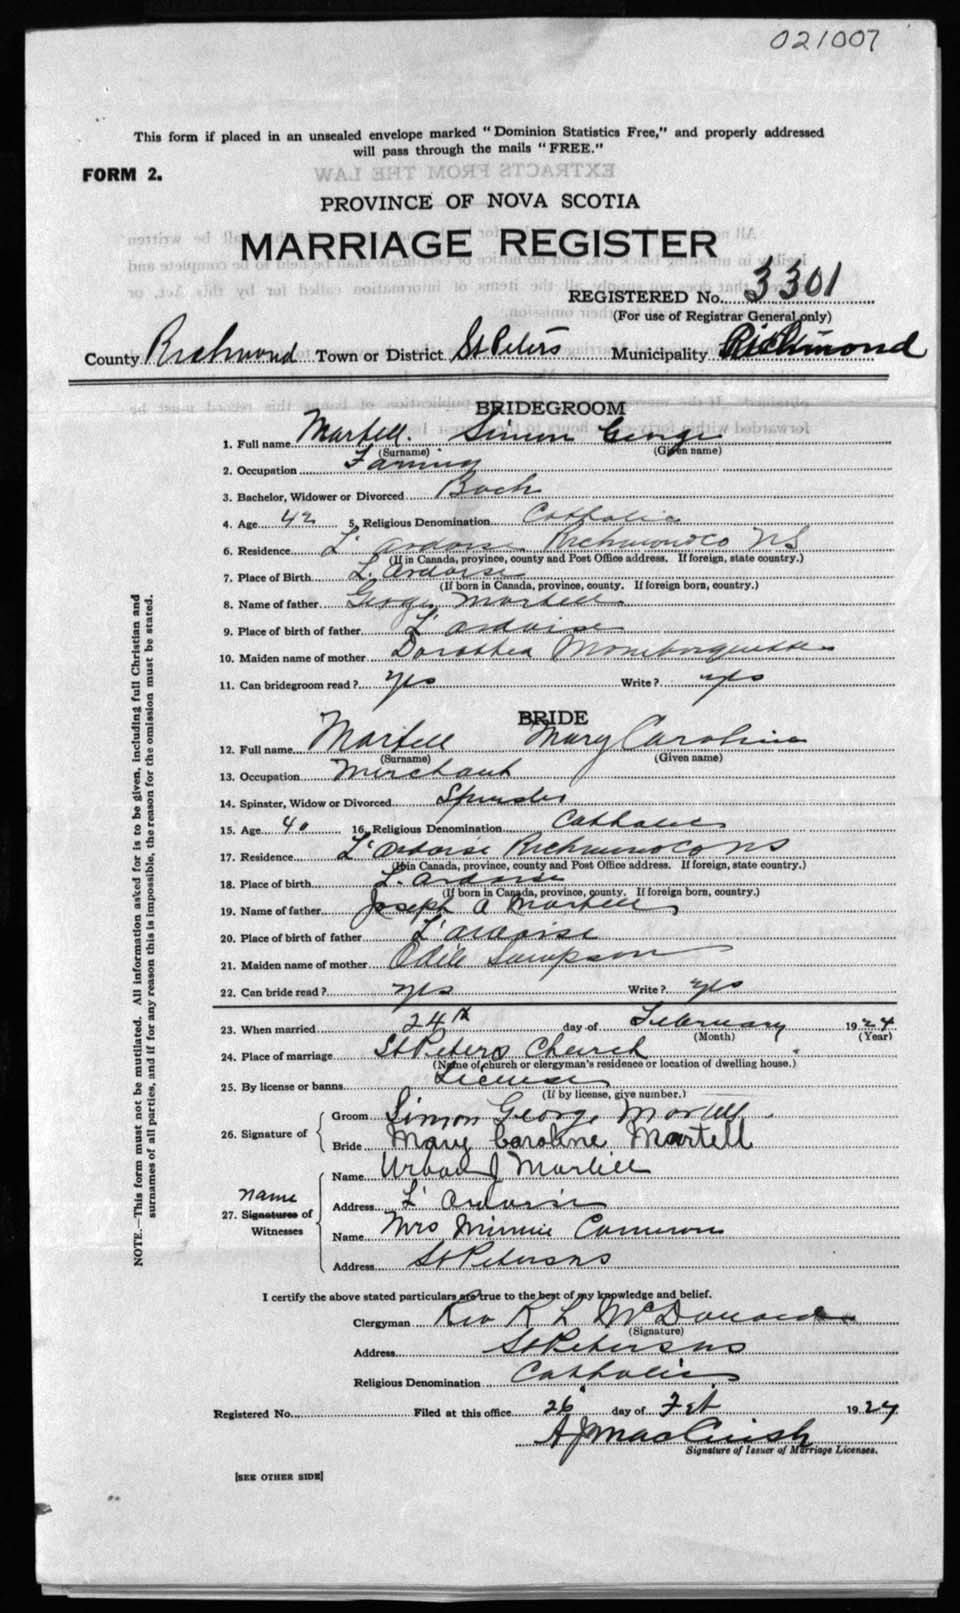 021007
This form if placed in an unsealed envelope marked "Dominion Statistics Free," and properly addressed
will pass through the mails "FREE."
FORM 2.
EXTRACTS FROM THE LAW
PROVINCE OF NOVA SCOTIA
MARRIAGE REGISTER
REGISTERED No. 3301
(For use of Registrar General only)
County Richmond Town or District St Peters Municipality Richmond
BRIDEGROOM
1. Full name Martell. Simon George
(Surname) (Given name)
2. Occupation Farming
3. Bachelor, Widower or Divorced Bach
4. Age 42 5. Religious Denomination Catholic
6. Residence L'ardoise Richmond Co NS
(If in Canada, province, county and Post Office address. If foreign, state country.)
7. Place of Birth L. Ardoise
(If born in Canada, province, county. If foreign born, country.)
8. Name of father George Martell
9. Place of birth of father L'ardoise
10. Maiden name of mother Dorothea
11. Can bridegroom read? yes Write? yes
BRIDE
12. Full name Martell Mary Caroline
(Surname) (Given name)
13. Occupation Merchant
14. Spinster, Widow or Divorced Spinster
15. Age 40 16. Religious Denomination Catholic
17. Residence L'ardoise Richmond Co NS
(If in Canada, province, county and Post Office address. If foreign, state country.)
18. Place of birth L. ardoise
(If born in Canada, province, county. If foreign born, country.)
19. Name of father Joseph A Martell
20. Place of birth of father L'ardoise
21. Maiden name of mother Odile Sampson
22. Can bride read? yes Write? yes
23. When married 24th day of February 1924
(Month) (Year)
24. Place of marriage St Peters Church
(Name of church or clergyman's residence or location of dwelling house.)
25. By license or banns License
(If by license, give number.)
26. Signature of Groom Simon George Martell.
Bride Mary Caroline Martell
27. Signatures name of Witnesses Name Urban J Martell
Address L'ardoise
Name Mrs Minnie Cameron
Address St Peters NS
I certify the above stated particulars are true to the best of my knowledge and belief.
Clergyman Rev R L McDonald
(Signature)
Address St Peters NS
Religious Denomination Catholic
Registered No. Filed at this office 26 day of Feb 1924
A J MacCuish
Signature of Issuer of Marriage Licenses.
[SEE OTHER SIDE]
NOTE.—This form must not be mutilated. All information asked for is to be given, including full Christian and
surnames of all parties, and if for any reason this is impossible, the reason for the omission must be stated.